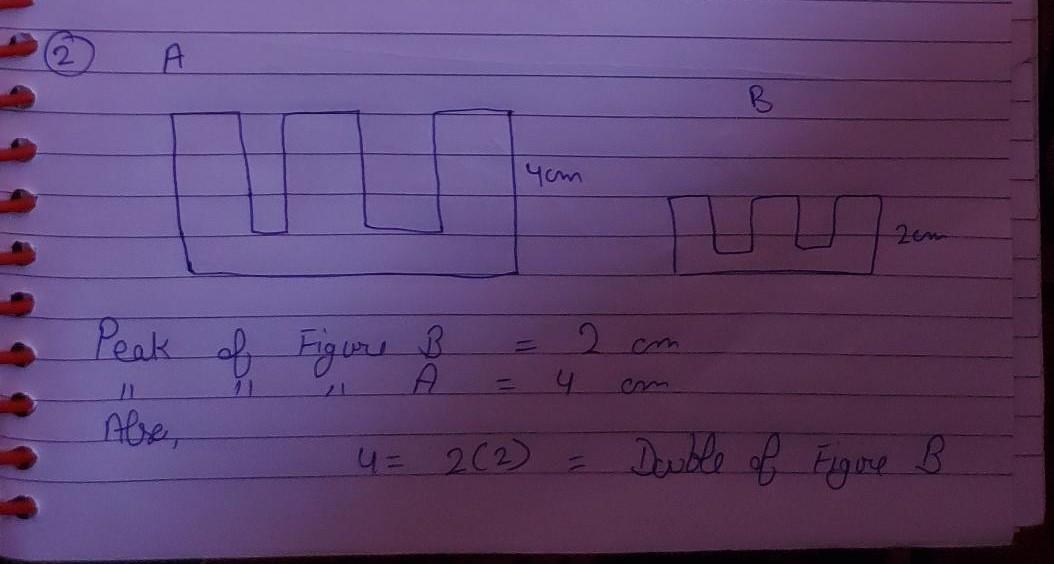 2 A
B
4cm
2cm
Peak of Figure B = 2 cm
" " " A = 4 cm
Also,
4 = 2(2) = Double of Figure B